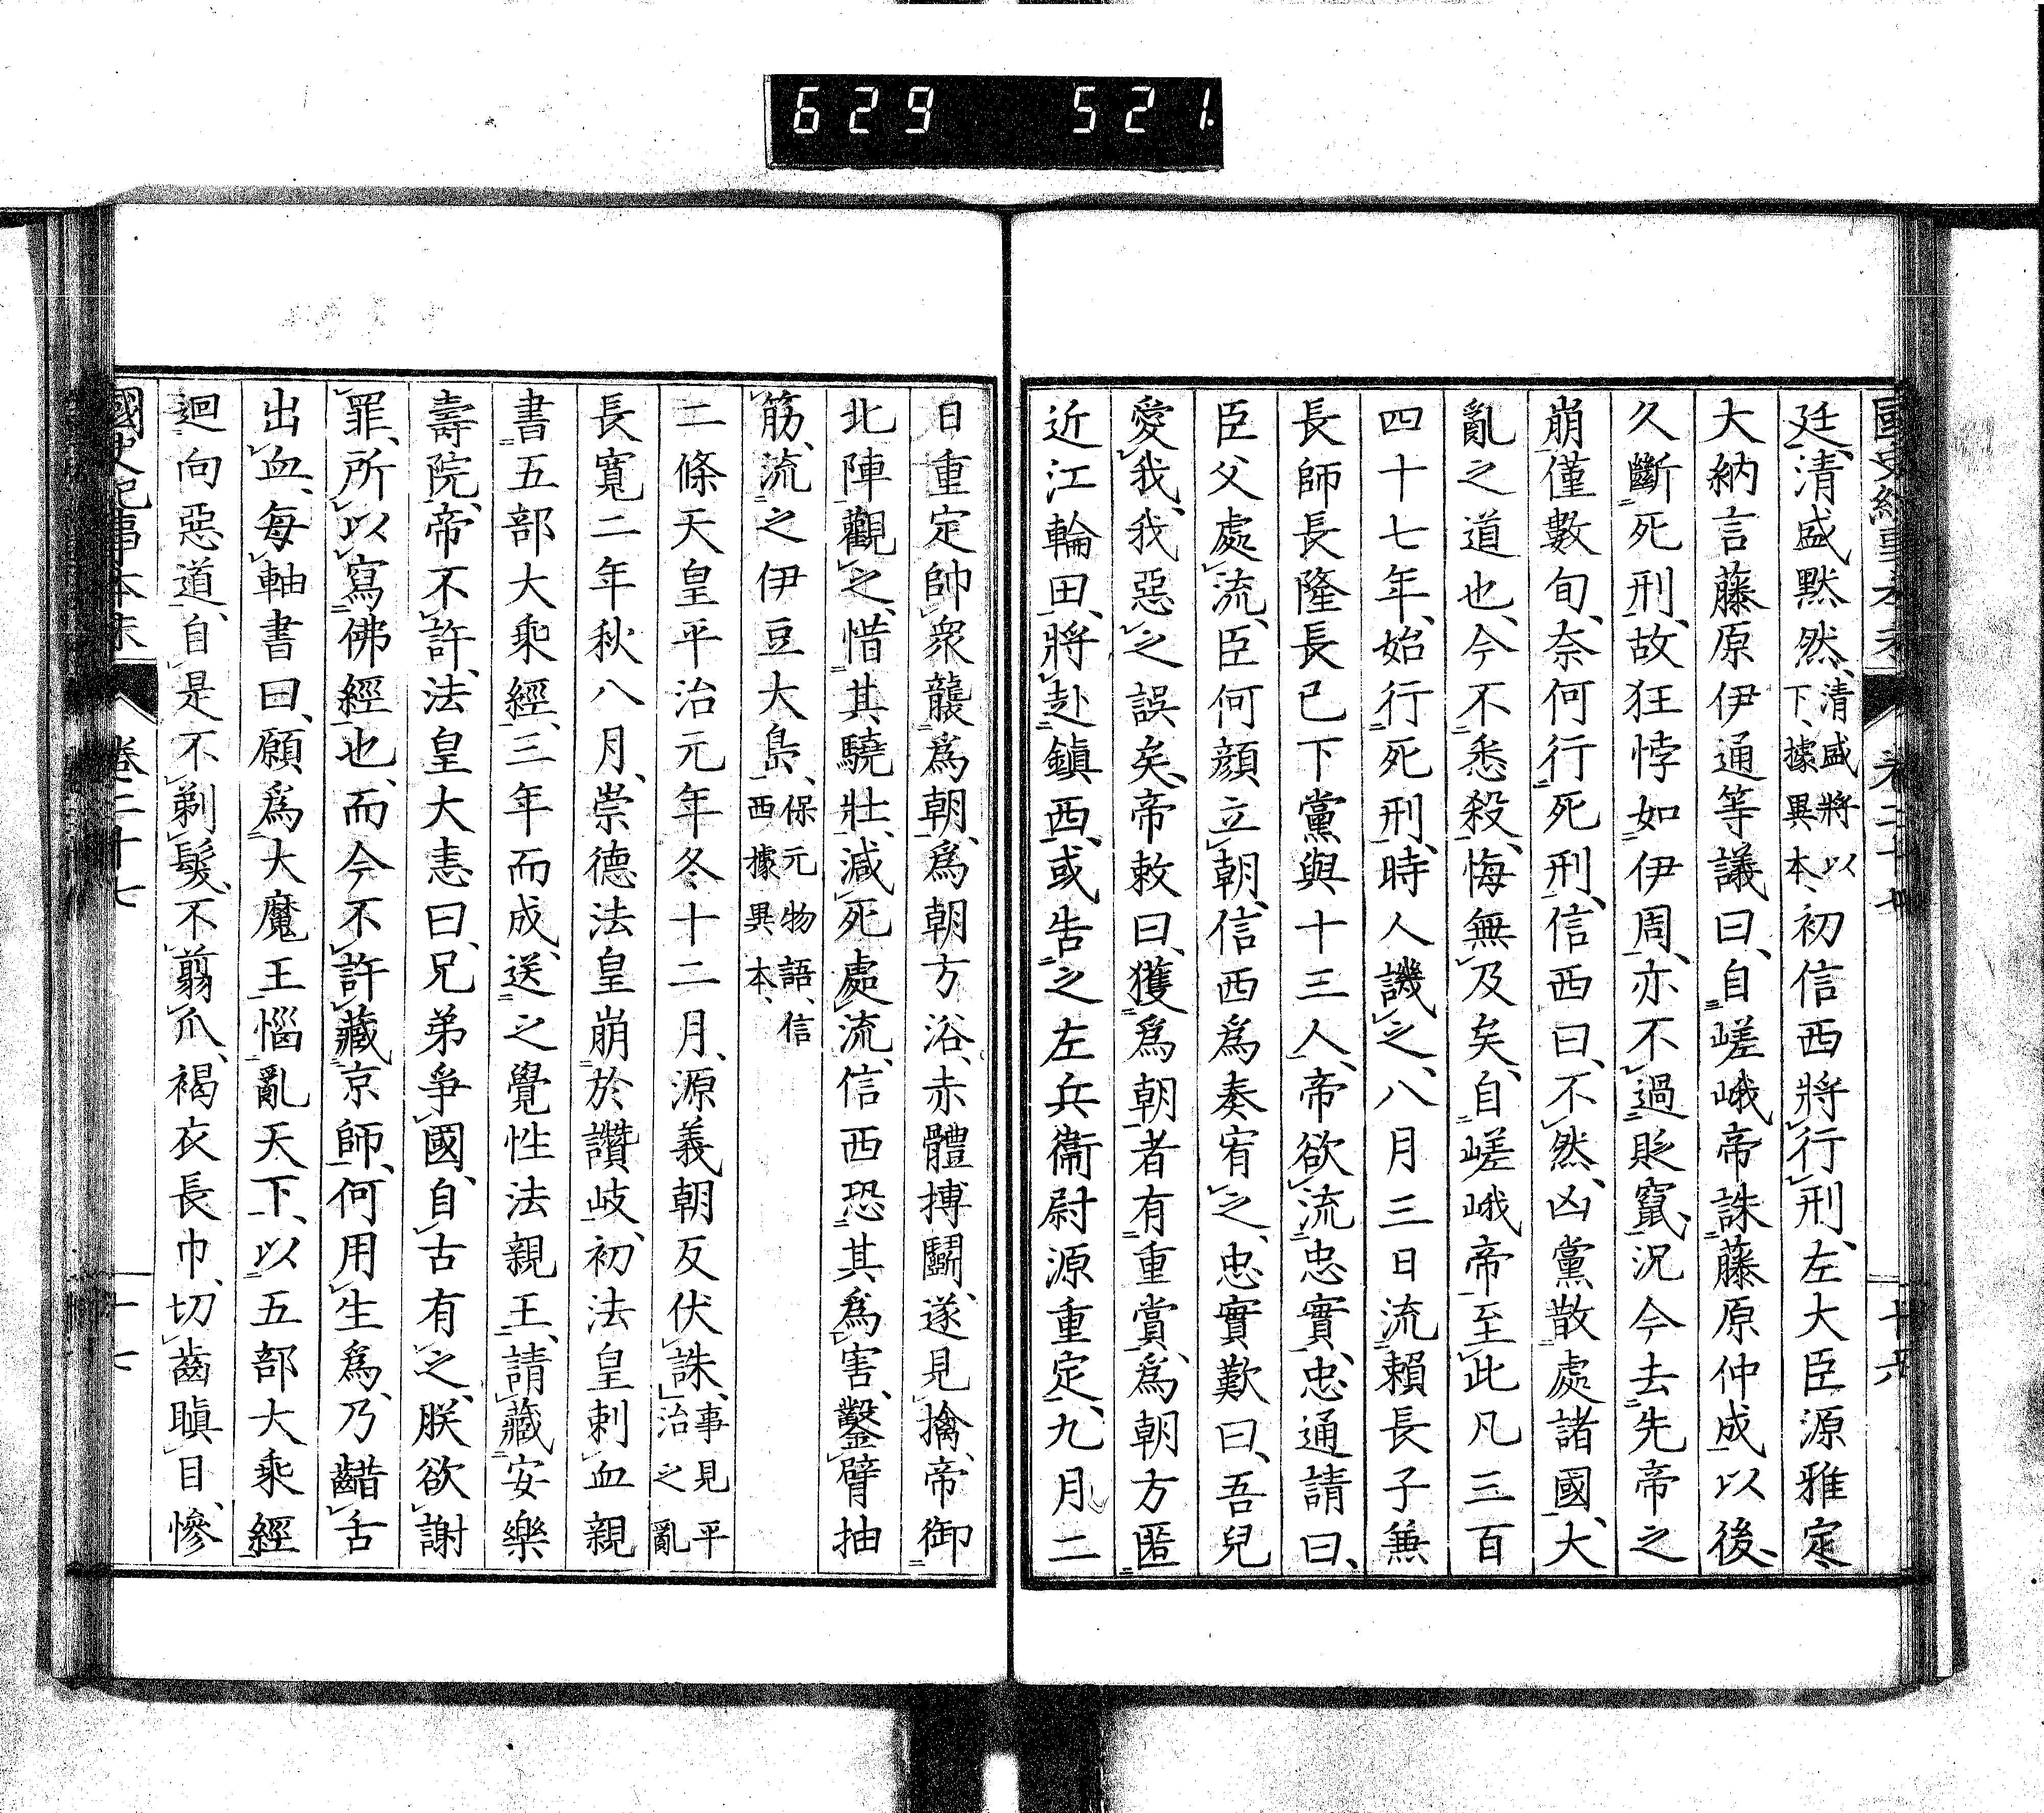 629 521
國史紀事本末 卷二十七 十六
廷、清盛默然、清盛將以下、據異本、初信西將行刑、左大臣源雅定
大納言藤原伊通等議曰、自嵯峨帝誅藤原仲成以後、
久斷死刑、故狂悖如伊周、亦不過貶竄、況今去先帝之
崩僅數旬、奈何行死刑、信西曰、不然、凶黨散處諸國、大
亂之道也、今不悉殺、悔無及矣、自嵯峨帝至此凡三百
四十七年、始行死刑、時人譏之、八月三日流賴長子兼
長師長長隆長已下黨與十三人、帝欲流忠實、忠通請曰、
臣父處流、臣何顏立朝、信西爲奏宥之、忠實歎曰、吾兒
愛我、我惡之誤矣、帝敕曰、獲爲朝者有重賞、爲朝方匿
近江輪田、將赴鎮西、或告之左兵衞尉源重定、九月二
日重定帥衆襲爲朝、爲朝方浴、赤體搏鬭、遂見擒、帝御
北陣觀之、惜其驍壯、減死處流、信西恐其爲害、鑿臂抽
筋、流之伊豆大島、保元物語、信西據異本、
二條天皇平治元年冬十二月、源義朝反伏誅、事見平治之亂
長寬二年秋八月、崇德法皇崩於讚岐、初法皇刺血親
書五部大乘經、三年而成、送之覺性法親王、請藏安樂
壽院、帝不許、法皇大恚曰、兄弟爭國、自古有之、朕欲謝
罪、所以寫佛經也、而今不許藏京師、何用生爲、乃齰舌
出血、每軸書曰、願爲大魔王惱亂天下、以五部大乘經
迴向惡道、自是不剃髮、不翦爪、褐衣長巾、切齒瞋目、慘
國史紀事本末 卷二十七 十七